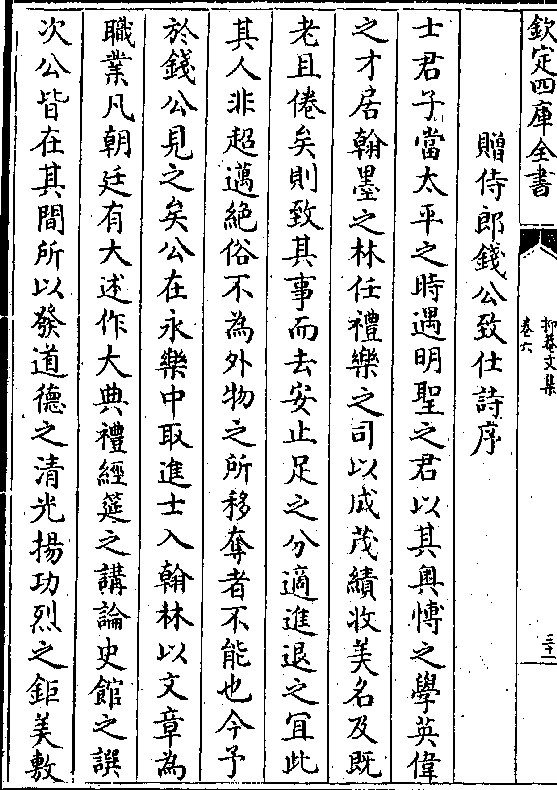 欽定四庫全書
抑菴文集
卷六
三十一
贈侍郎錢公致仕詩序
士君子當太平之時遇明聖之君以其奥愽之學英偉
之才居翰墨之林任禮樂之司以成茂績收美名及既
老且倦矣則致其事而去安止足之分適進退之冝此
其人非超邁絶俗不為外物之所移奪者不能也今予
於錢公見之矣公在永樂中取進士入翰林以文章為
職業凡朝廷有大述作大典禮經筵之講論史館之譔
次公皆在其間所以發道德之清光揚功烈之鉅美敷